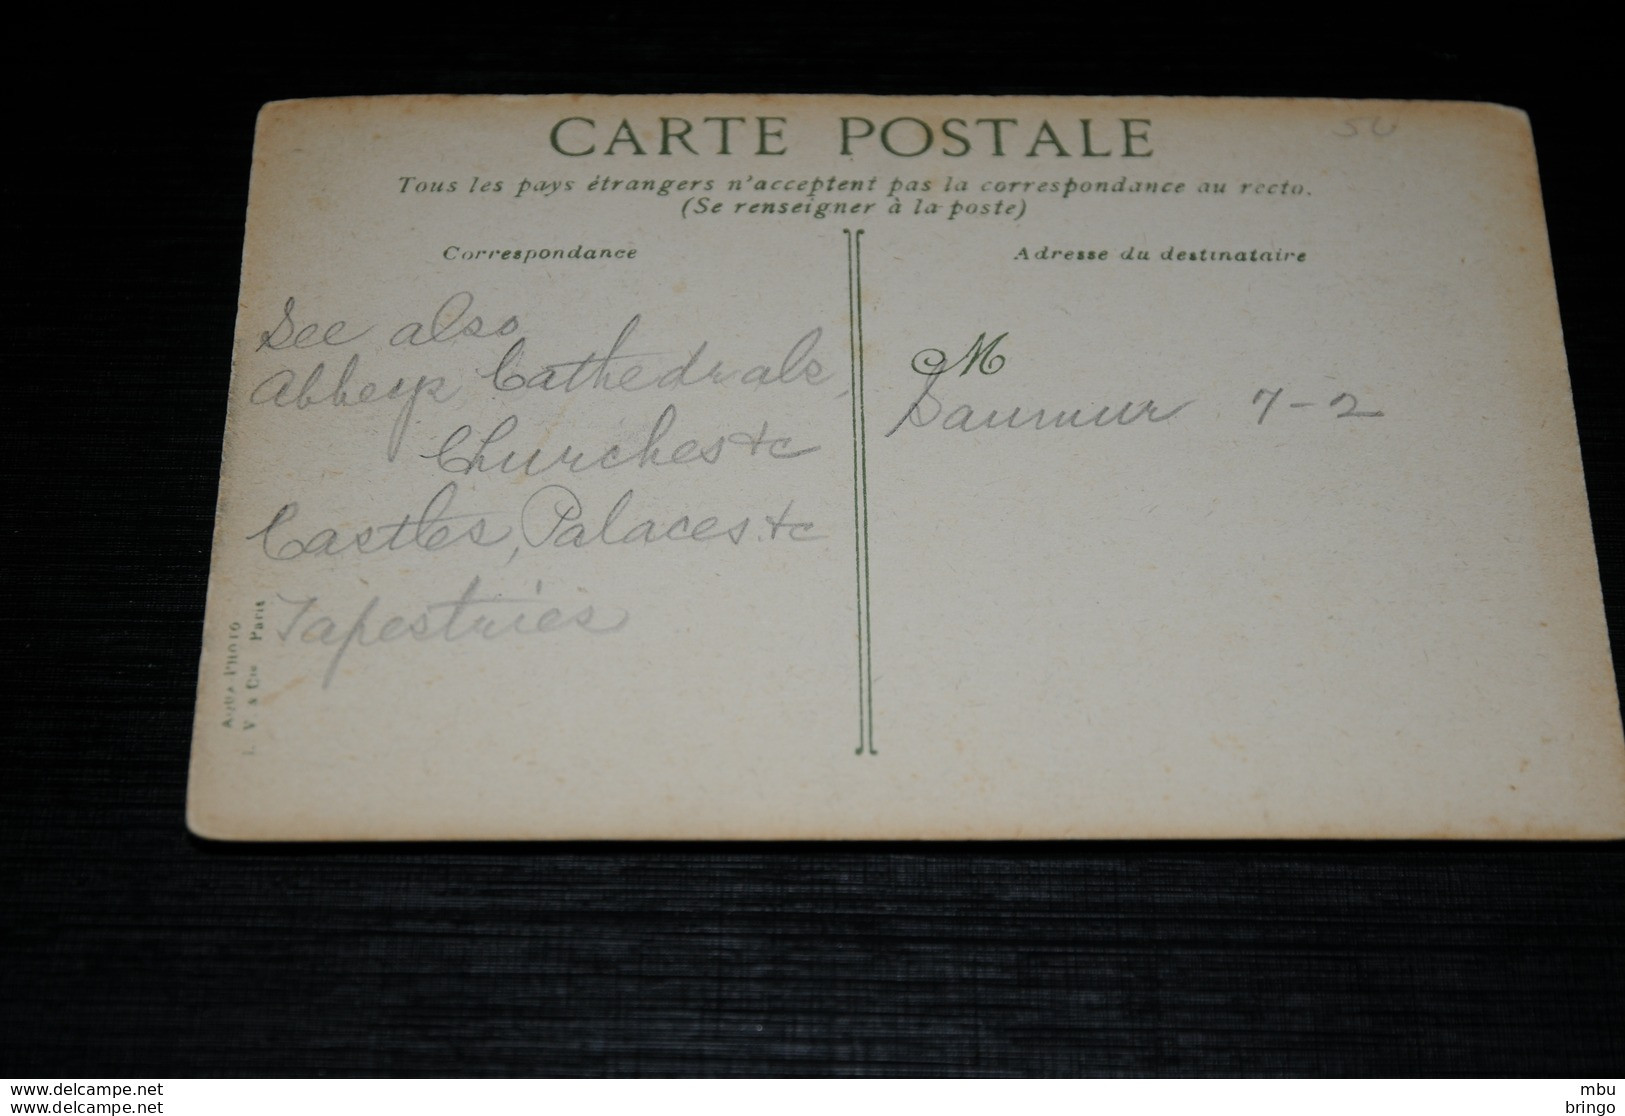 CARTE POSTALE
Tous les pays étrangers n'acceptent pas la correspondance au recto.
(Se renseigner à la poste)
Correspondance
See also
Abbeys Cathedrals,
Churches &c
Castles, Palaces &c
Tapestries
AQUA-PHOTO
L. V. & Cie Paris
Adresse du destinataire
M
Saumur 7-2
delcampe.net
delcampe.net
mbu
bringo